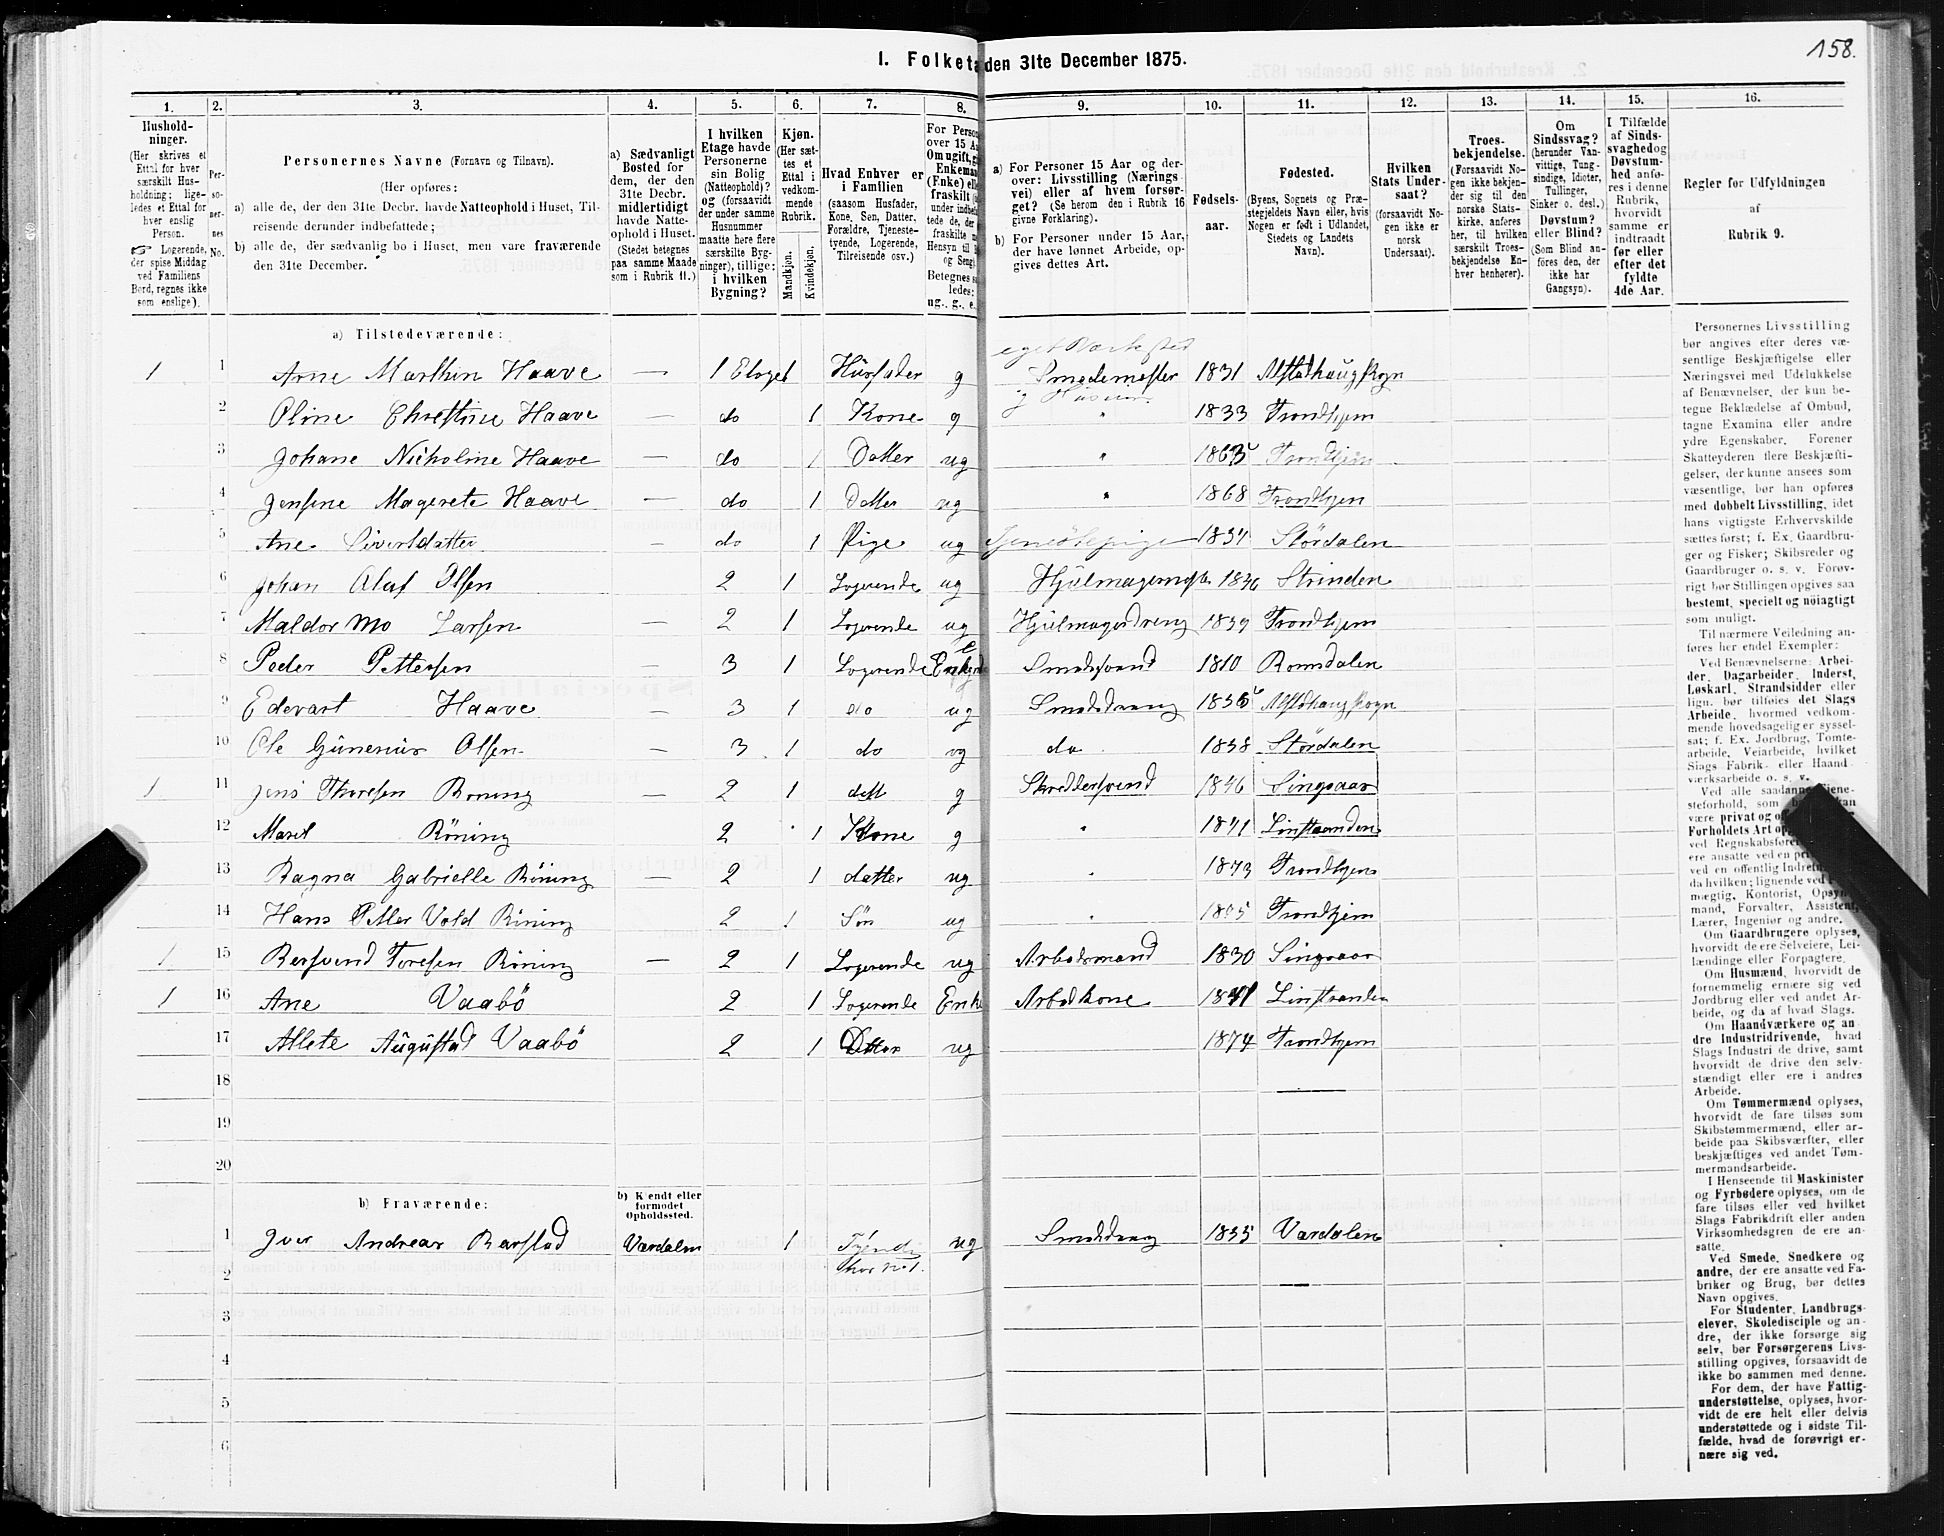 158.
I. Folketæ den 31te December 1875.
1. 2. 3. 4. 5. 6. 7. 8. 9. 10. 11. 12. 13. 14. 15. 16.
Hushold-
ninger.
(Her skrives et
Ettal for hver
særskilt Hus-
holdning; lige-
ledes et Ettal for
hver enslig
Person.
☞ Logerende,
der spise Middag
ved Familiens
Bord, regnes ikke
som enslige).
Per-
so-
ner-
nes
No.
Personernes Navne (Fornavn og Tilnavn).
(Her opføres:
a) alle de, der den 31te Decbr. havde Natteophold i Huset, Til-
reisende derunder indbefattede;
b) alle de, der sædvanlig bo i Huset, men vare fraværende
den 31te December.
a) Sædvanligt
Bosted for
dem, der den
31te Decbr.
midlertidigt
havde Natte-
ophold i Huset.
(Stedet betegnes
paa samme Maade
som i Rubrik 11.)
I hvilken
Etage havde
Personerne
sin Bolig
(Natteophold)?
og (forsaavidt
der under samme
Husnummer
maatte høre flere
særskilte Byg-
ninger), tillige:
i hvilken
Bygning?
Kjøn.
(Her sæt-
tes et
Ettal i
vedkom-
mende
Rubrik.
Mandkjøn.
Kvindekjøn.
Hvad Enhver er
i Familien
(saasom Husfader,
Kone, Søn, Datter,
Forældre, Tjeneste-
tyende, Logerende,
Tilreisende osv.)
For Person
over 15 A
Om ugift, g
Enkeman
(Enke) elle
fraskilt (
under indbef
tede de, der
fraskilte m
Hensyn til B
og Seng).
Betegnes sa
ledes:
ug., g., e.
a) For Personer 15 Aar og der-
over: Livsstilling (Nærings
vei) eller af hvem forsør-
get? (Se herom den i Rubrik 16
givne Forklaring).
b) For Personer under 15 Aar,
der have lønnet Arbeide, op-
gives dettes Art.
Fødsels-
aar.
Fødested.
(Byens, Sognets og Præ-
stegjeldets Navn eller, hvis
Nogen er født i Udlandet,
Stedets og Landets
Navn).
Hvilken
Stats Under-
saat?
(forsaavidt No-
gen ikke er
norsk
Undersaat).
Troes-
bekjendelse.
(Forsaavidt No-
gen ikke bekjen-
der sig til den
norske Stats-
kirke, anføres
her, til hvilken
særskilt Troes-
bekjendelse En-
hver henhører).
Om
Sindssvag?
(herunder Van-
vittige, Tung-
sindige, Idioter,
Tullinger,
Sinker o. desl.)
Døvstum?
eller Blind?
(Som Blind an-
føres den, der
ikke har
Gangsyn).
I Tilfælde
af Sinds-
svaghed og
Døvstum-
hed anfø-
res i denne
Rubrik,
hvorvidt
samme er
indtraadt
før eller
efter det
fyldte
4de Aar.
Regler for Udfyldningen
af
Rubrik 9.
a) Tilstedeværende:
eget Værksted
1 1 Arne Marthin Haave — 1 Etage 1 Husfader g Smedemester 1831 Alstahaug Sogn
2 Oline Christine Haave — do 1 Kone g " 1833 Trondhjem
3 Johane Nicholine Haave — do 1 Datter ug " 1865 Trondhjem
4 Jensine Magerete Haave — do 1 Datter ug " 1868 Trondhjem
5 Ane Sivertdatter — do 1 Pige ug Tjenestepige 1834 Stördalen
6 Johan Olaf Olsen — 2 1 Logerende ug Hjulmagermester 1836 Strinden
7 Maldor Mo Larsen — 2 1 Logerende ug Hjulmagerdreng 1859 Trondhjem
8 Peder Pettersen — 3 1 Logerende 1810 Romsdalen
9 Edevart Haave — 3 1 do ug Smededreng 1856 Alstahaug Sogn
10 Ole Gunerius Olsen — 3 1 do ug do 1858 Stördalen
1 11 Jens Thoresen Roning — 2 1 dett g Skredersvend 1846 Singsaas
12 Maret Röning 2 1 Kone g " 1841 Linstranden
13 Ragna Gabrielle Röining — 2 1 datter ug " 1873 Trondhjem
14 Hans Petter Vold Röining 2 1 Sön ug " Trondhjem
1 15 Bersvend Toresen Röining — 2 1 Logerende ug Arbedsmand 1830 Singsaas
1 16 Ane Vaabö 2 1 Logerende Enke Arbedkone 1841 Linstranden
17 Allete Augustad Vaabö 2 1 Datter ug 1874 Trondhjem
18
19
20
b) Fraværende:
b) Kjendt eller
formodet
Opholdssted.
1 Iver Andreas Barstad Værdalen 1 Tjende ug Smeddreng 1855 Værdalen
2 hos No 1.
3
4
5
6
Personernes Livsstilling
bør angives efter deres væ-
sentlige Beskjæftigelse eller
Næringsvei med Udelukkelse
af Benævnelser, der kun be-
tegne Beklædelse af Ombud,
tagne Examina eller andre
ydre Egenskaber. Forener
Skatteyderen flere Beskjæfti-
gelser, der kunne ansees som
væsentlige, bør han opføres
med dobbelt Livsstilling, idet
hans vigtigste Erhvervskilde
sættes først; f. Ex. Gaardbru-
ger og Fisker; Skibsreder og
Gaardbruger o. s. v. Forøv-
rigt bør Stillingen opgives saa
bestemt, specielt og nöiagtigt
som muligt.
Til nærmere Veiledning an-
føres her endel Exempler:
Ved Benævnelserne: Arbei-
der, Dagarbeider, Inderst,
Løskarl, Strandsidder eller
lign. bør tilføies det Slags
Arbeide, hvormed vedkom-
mende hovedsagelig er syssel-
sat; f. Ex. Jordbrug, Tomte-
arbeide, Veiarbeide, hvilket
Slags Fabrik- eller Haand-
værksarbeide o. s. v.
Ved alle saadanne Tjene-
steforhold, som baade kan
være privat og
Forholdets Art
ved Regnskabsføre
ere ansatte ved en
ved en offentlig Indret
da hvilken; lignende ved
mægtig, Kontorist, Opsyns
mand, Forvalter, Assistent,
Lærer, Ingeniør og andre.
Om Gaardbrugere oplyses,
hvorvidt de ere Selveiere, Lei-
lændinge eller Forpagtere.
Om Husmænd, hvorvidt de
fornemmelig ernære sig ved
Jordbrug eller ved andet Ar-
beide, og da af hvad Slags.
Om Haandværkere og an-
dre Industridrivende, hvad
Slags Industri de drive, samt
hvorvidt de drive den selv-
stændigt eller ere i andres
Arbeide.
Om Tømmermænd oplyses,
hvorvidt de fare tilsøs som
Skibstømmermænd, eller ar-
beide paa Skibsværfter, eller
beskjæftiges ved andet Tøm-
mermandsarbeide.
I Henseende til Maskinister
og Fyrbødere oplyses, om de
fare tilsøs eller ved hvilket
Slags Fabrikdrift eller anden
Virksomhedsgren de ere an-
satte.
Ved Smede, Snedkere og
andre, der ere ansatte ved Fa-
briker og Brug, bør dettes
Navn opgives.
For Studenter, Landbrugs-
elever, Skoledisciple og an-
dre, der ikke forsørge sig
selv, bør Forsørgerens Livs-
stilling opgives, forsaavidt de
ikke bo sammen med denne.
For dem, der have Fattig-
understøttelse, oplyses, hvor-
vidt de ere helt eller delvis
understøttede og i sidste Til-
fælde, hvad de forøvrigt er-
nære sig ved.